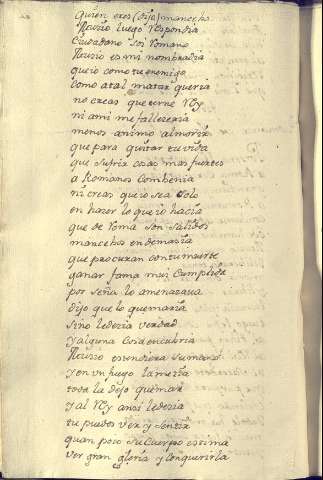 Quien eres (dijo) mancebo
Mucio luego Respondia
Ciudadano soi Romano
Mucio es mi nombradia
que io como tu enemigo
como atal matar queria
no creas que teme Rey
ni ami me fallezeria
menos animo al morir
que para quitar tu vida
que sufrir cosas mas fuertes
a Romanos Combenia
ni creas que io sea solo
en hazer lo que io hacia
que de Roma son salidos
mancebos en demasia
que procuran con tu muerte
ganar fama mui Cumplida
por seña lo amenazava
dijo que lo quemaria
sino le dezia verdad
y alguna Cosa encubria
Mucio estendiera su mano
y en un fuego la metia
toda la dejo quemar
y al Rey ansi le dezia
tu puedes Ver y sentir
quan poco su Cuerpo estima
Ver gran gloria y Conquerirla